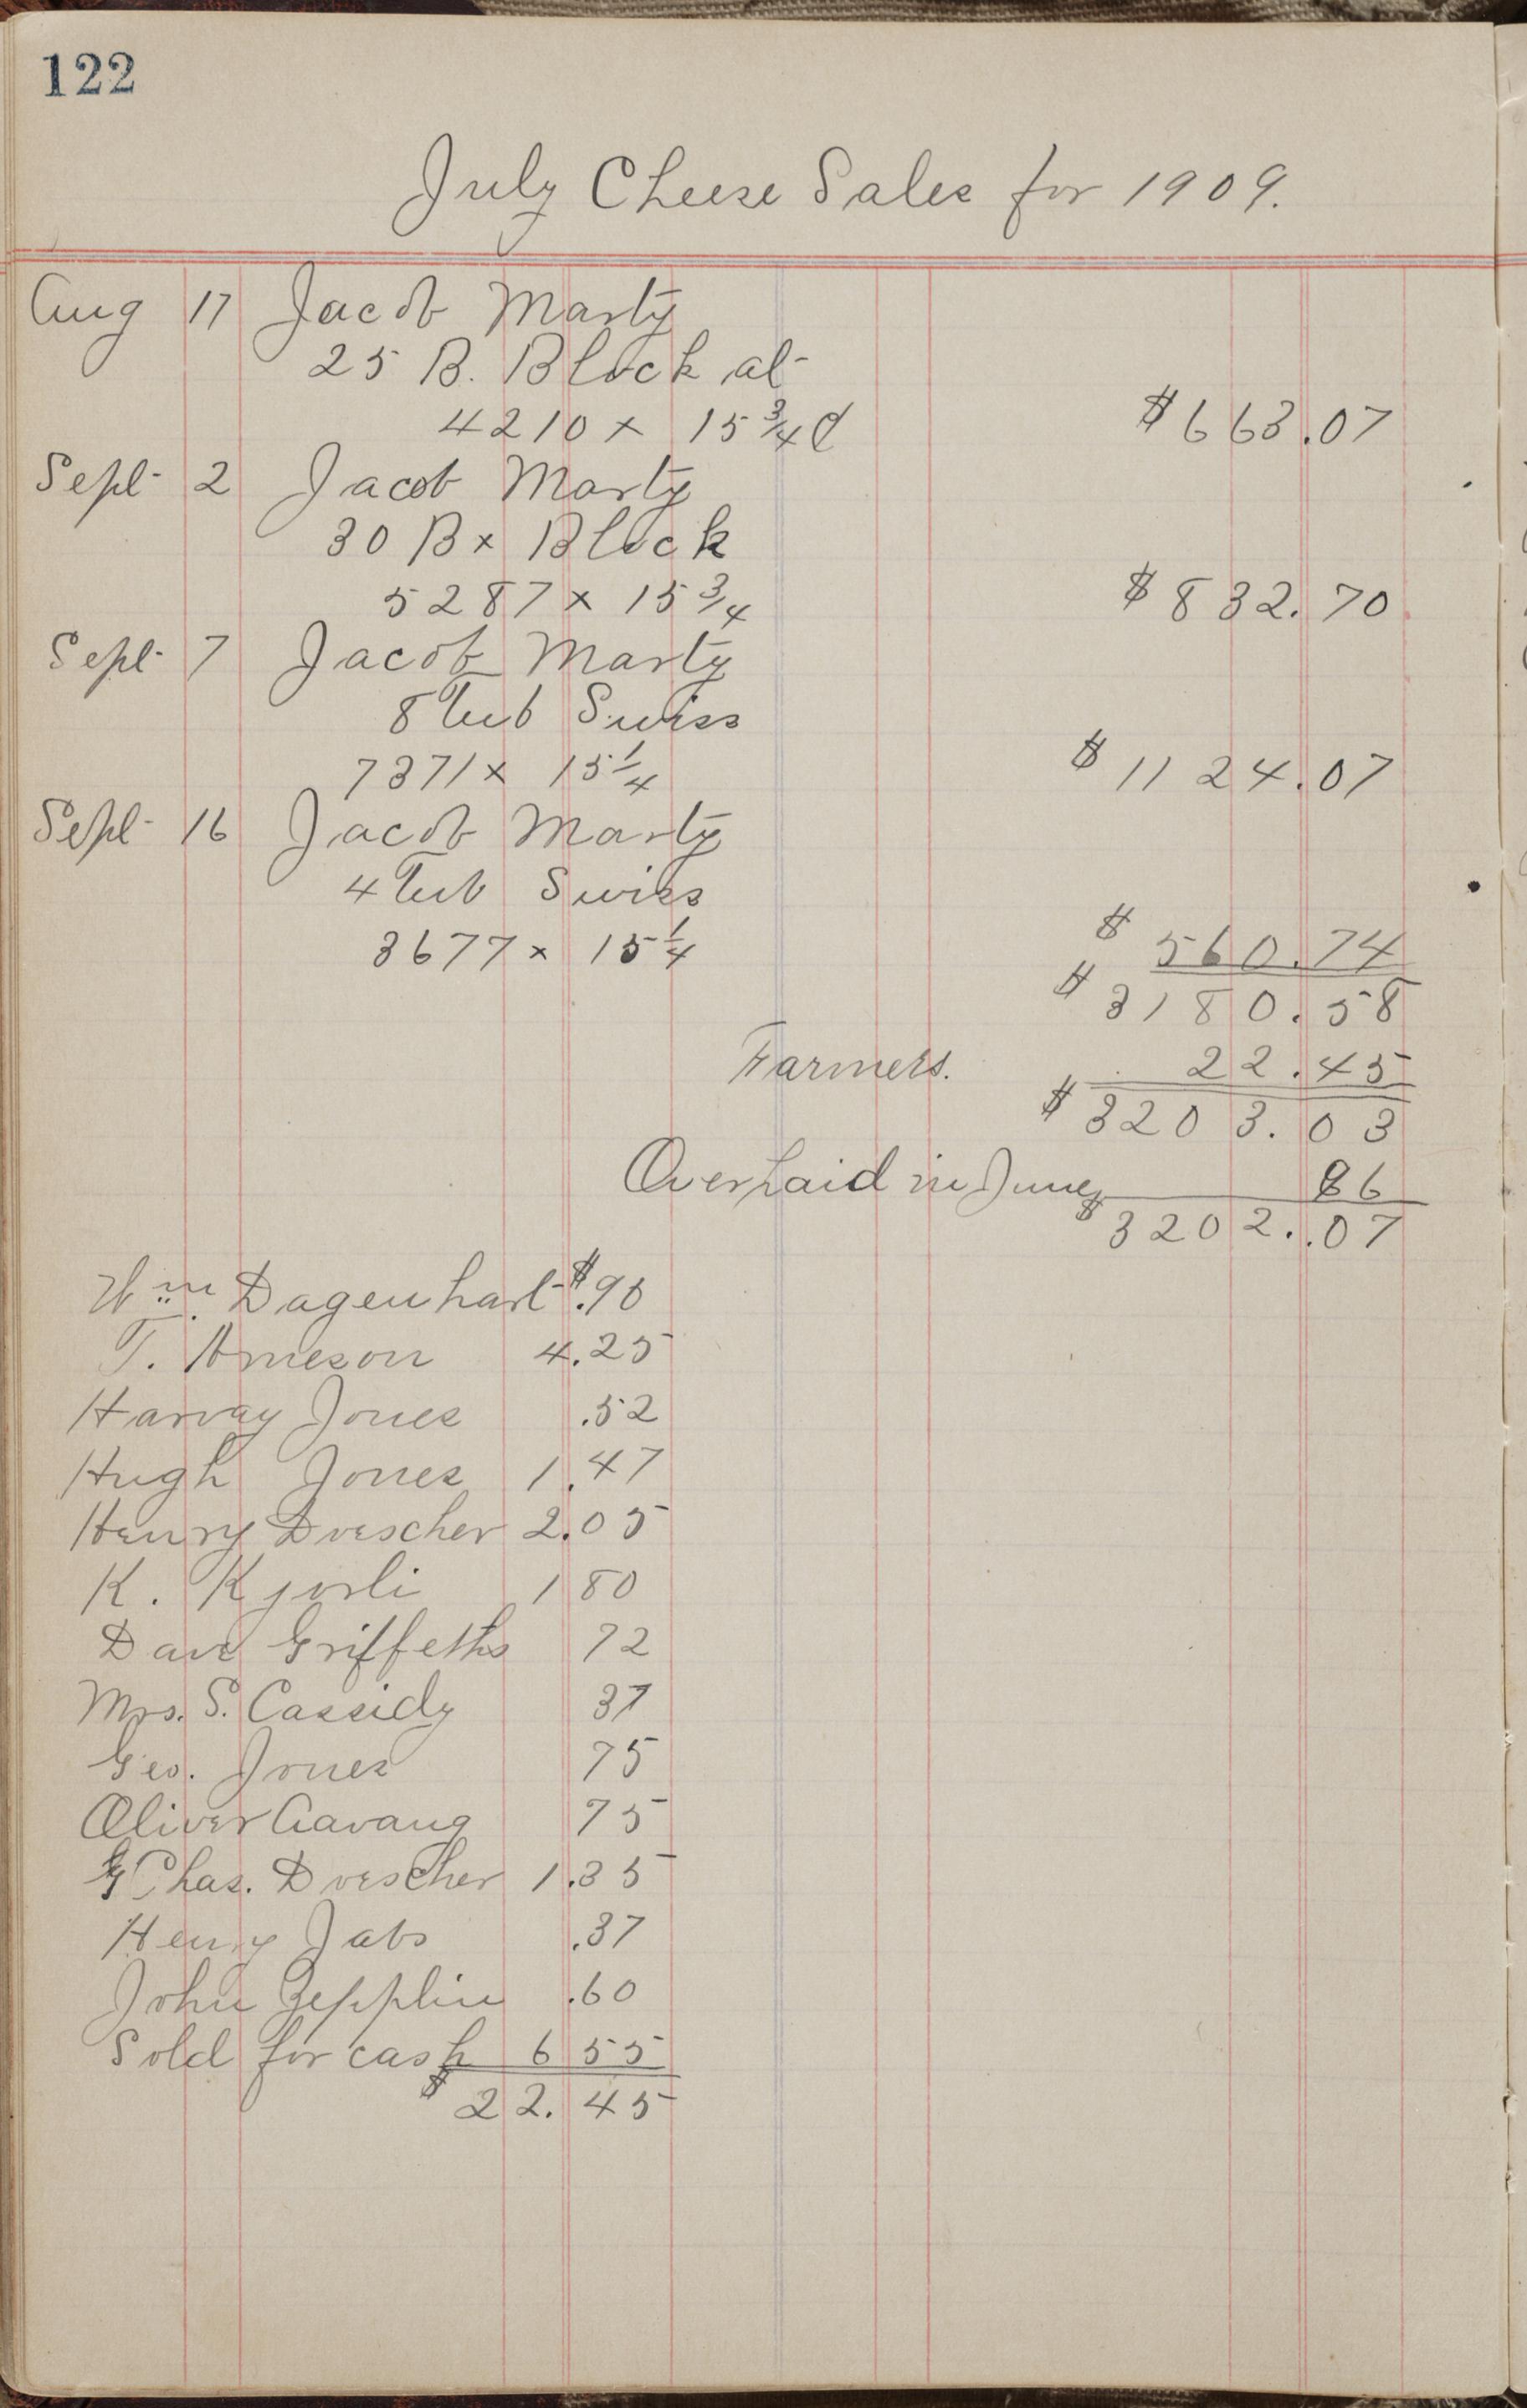 122
July Cheese Sales for 1909.
Aug 17 Jacob Marty
25 B. Block at
4210 x 15 3/4 ¢ $663.07
Sept 2 Jacob Marty
30 Bx Block
5287 x 15 3/4 $832.70
Sept 7 Jacob Marty
8 Tub Swiss
7371 x 15 1/4 $1124.07
Sept 16 Jacob Marty
4 Tub Swiss
3677 x 15 1/4 $560.74
$3180.58
Farmers. 22.45
$3203.03
Overpaid in June 96
$3202.07
Wm Dagenhart $.90
T. Arneson 4.25
Harvay Jones .52
Hugh Jones 1.47
Henry Drescher 2.05
K. Kjorli 1 80
Dave Griffeths 72
Mrs. S. Cassidy 37
Geo. Jones 75
Oliver Aavang 75
Chas. Drescher 1.35
Henry Jabs .37
John Zepplin .60
Sold for cash 6 55
$22.45